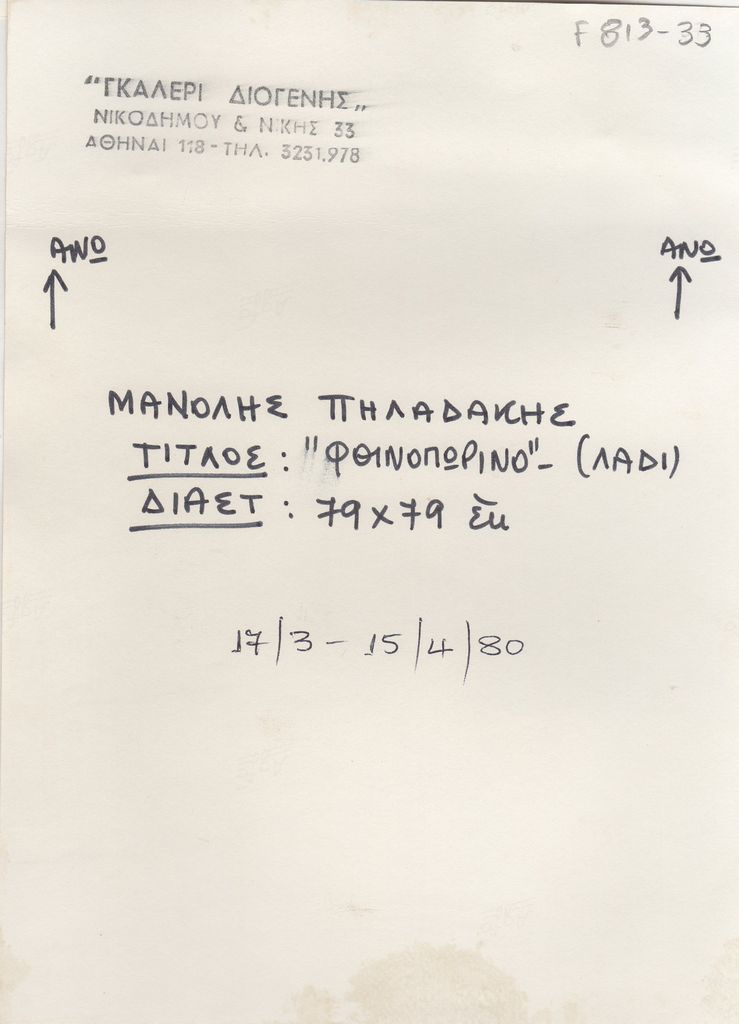 F 813-33
"ΓΚΑΛΕΡΙ ΔΙΟΓΕΝΗΣ„
ΝΙΚΟΔΗΜΟΥ & ΝΙΚΗΣ 33
ΑΘΗΝΑΙ 118 - ΤΗΛ. 3231.978
ΑΝΩ ΑΝΩ
ΜΑΝΟΛΗΣ ΠΗΛΑΔΑΚΗΣ
ΤΙΤΛΟΣ : "ΦΘΙΝΟΠΩΡΙΝΟ" - (ΛΑΔΙ)
ΔΙΑΣΤ : 79 x 79 ἑκ
17/3 - 15/4/80